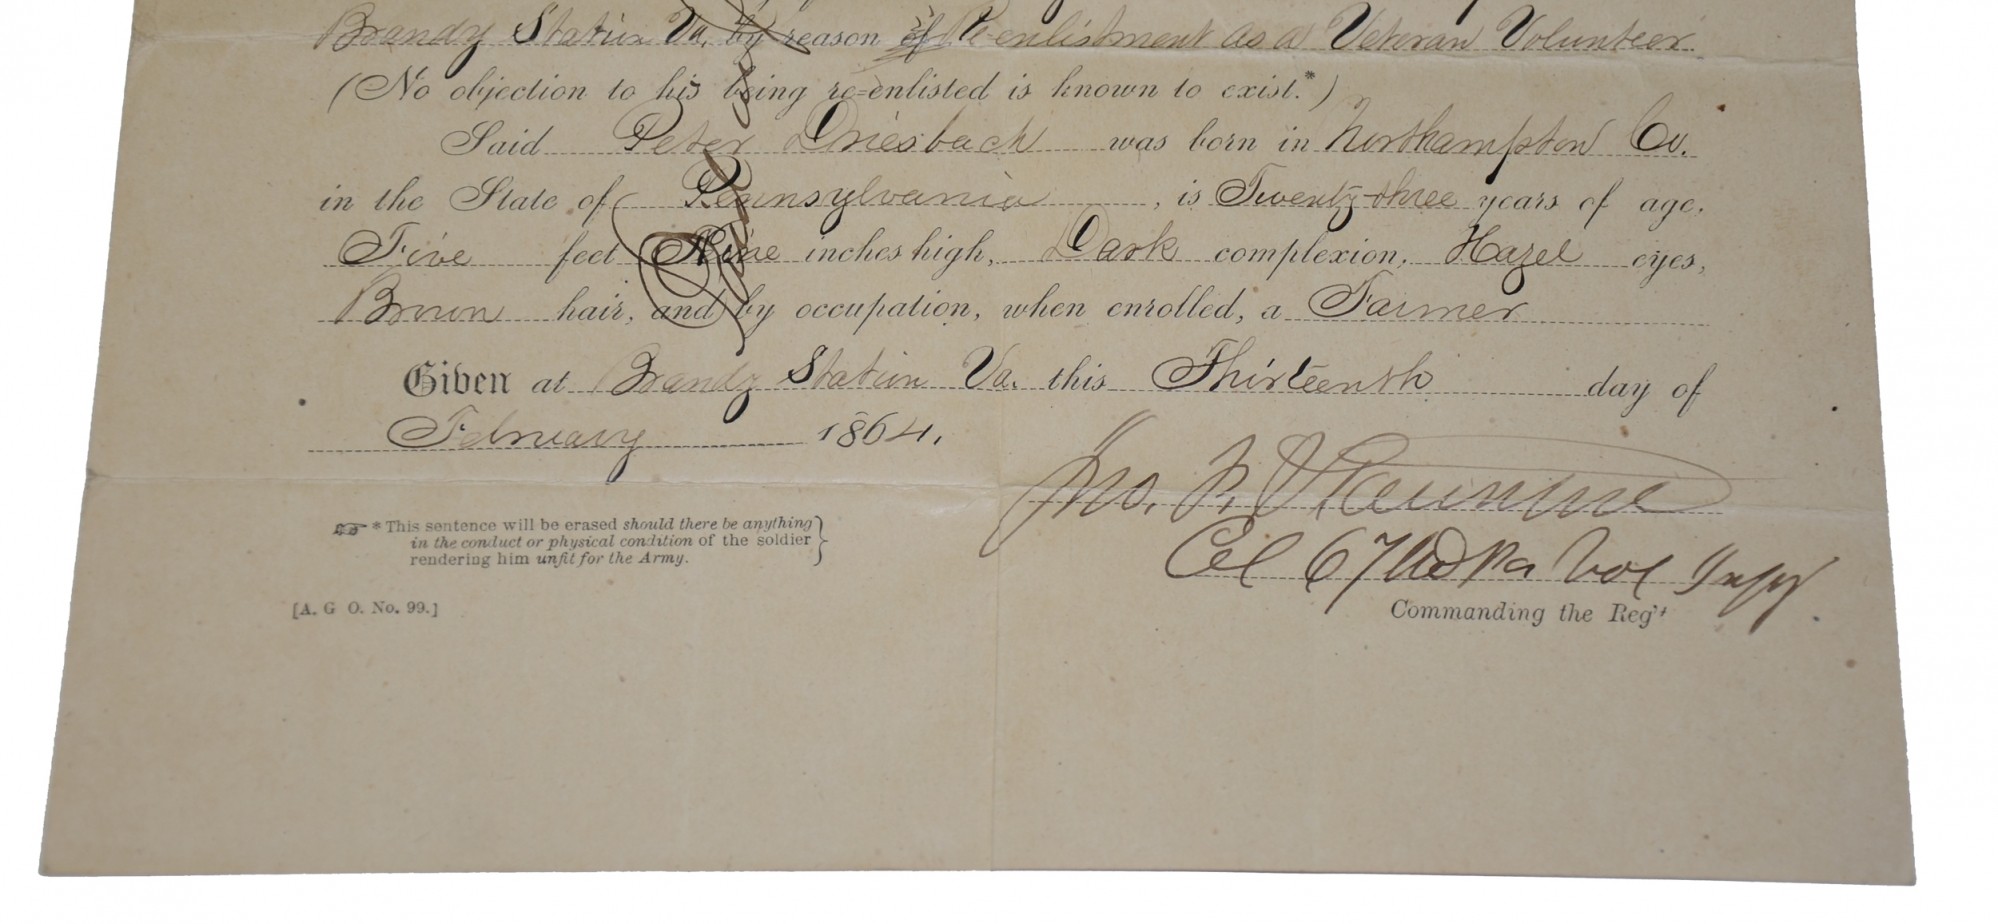 Brandy Station Va, by reason of Re-enlistment as a Veteran Volunteer.
(No objection to his being re-enlisted is known to exist.*)
Said Peter Driesbach was born in Northampton Co.
in the State of Pennsylvania, is Twenty-three years of age,
Five feet Nine inches high, Dark complexion, Hazel eyes,
Brown hair, and by occupation, when enrolled, a Farmer
Given at Brandy Station Va. this Thirteenth day of
February 1864.
Jno. F. Staunton
Col 67th Pa Vol Infy
Commanding the Reg't
*This sentence will be erased should there be anything
in the conduct or physical condition of the soldier
rendering him unfit for the Army.
[A. G O. No. 99.]